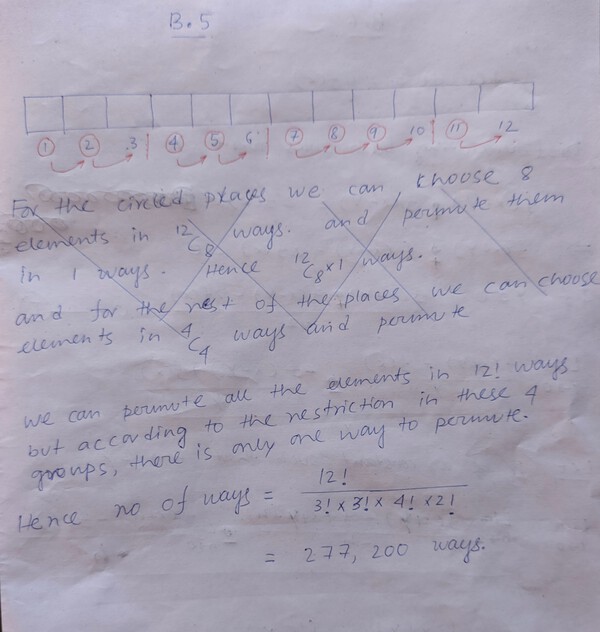 B.5
① ② 3 | ④ ⑤ 6 | ⑦ ⑧ ⑨ 10 | ⑪ 12
For the circled places we can choose 8
elements in ¹²C₈ ways. and permute them
in 1 ways. Hence ¹²C₈×1 ways.
and for the rest of the places we can choose
elements in ⁴C₄ ways and permute
we can permute all the elements in 12! ways
but according to the restriction in these 4
groups, there is only one way to permute.
Hence no of ways = 12! / 3! × 3! × 4! × 2!
= 277, 200 ways.